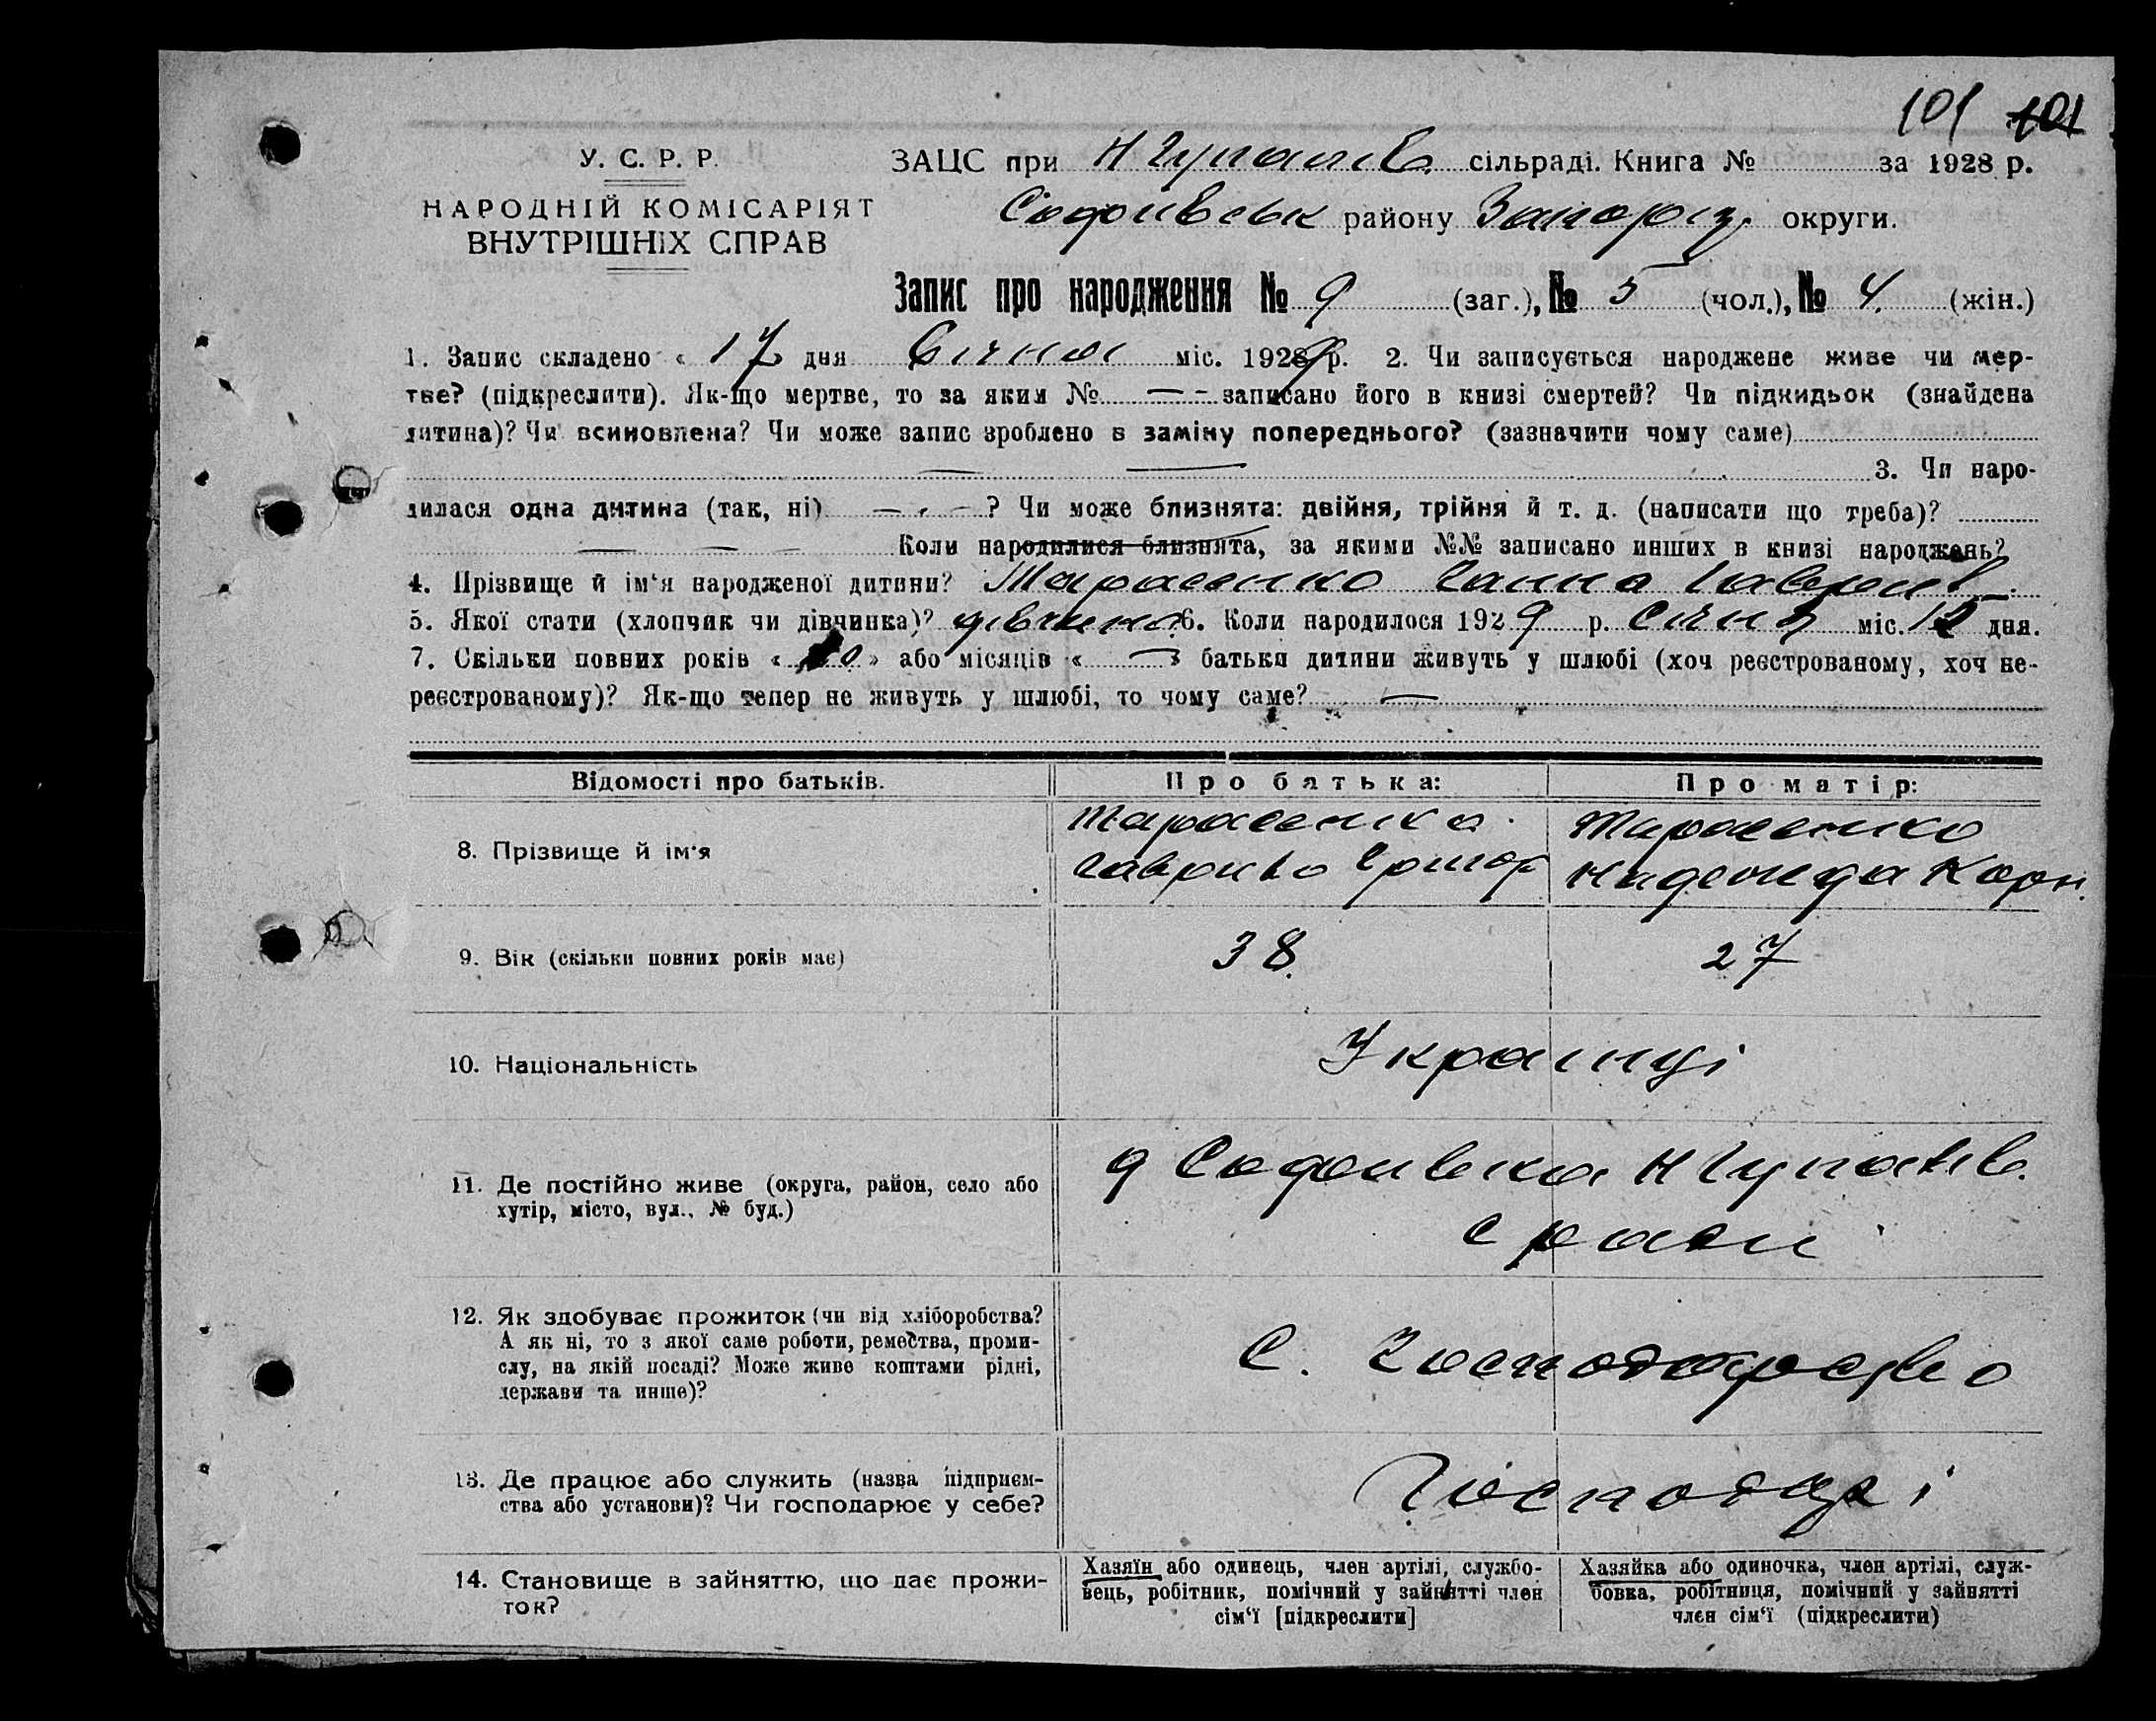 101 101
У. С. Р. Р.
НАРОДНІЙ КОМІСАРІЯТ
ВНУТРІШНІХ СПРАВ
ЗАЦС при сільраді. Книга № за 1928 р.
Софиівськ району Запоріз. округи.
Запис про народження № 9 (заг.), № 5 (чол.), № 4. (жін.)
1. Запис складено « 17 дня Січня міс. 1929 р. 2. Чи записується народжене живе чи мер-
тве? (підкреслити). Як-що мертве, то за яким № — - записано його в книзі смертей? Чи підкидьок (знайдена
дитина)? Чи всиновлена? Чи може запис зроблено в заміну попереднього? (зазначити чому саме)
— — 3. Чи наро-
дилася одна дитина (так, ні) — - — ? Чи може близнята: двійня, трійня й т. д. (написати що треба)?
— — — Коли народилися близнята, за якими №№ записано инших в книзі народжень?
4. Прізвище й ім‘я народженої дитини? Тарасенко Ганна Гаврил. —
5. Якої стати (хлопчик чи дівчинка)? дівчина 6. Коли народилося 1929 р. Січня міс. 12 дня.
7. Скільки повних років « 10 » або місяців « — » батьки дитини живуть у шлюбі (хоч реєстрованому, хоч не-
реєстрованому)? Як-що тепер не живуть у шлюбі, то чому саме? —
Відомості про батьків. Про батька: Про матір:
8. Прізвище й ім‘я
Тарасенко Гаврило Григор
Тарасенко Надежда Корн.
9. Вік (скільки повних років має) 38. 27
10. Національність Українці
11. Де постійно живе (округа, район, село або
хутір, місто, вул., № буд.)
д Софиівка
с ради
12. Як здобуває прожиток (чи від хліборобства?
А як ні, то з якої саме роботи, ремества, проми-
слу, на якій посаді? Може живе коштами рідні,
держави та инше)?
С. Господарство
13. Де працює або служить (назва підприєм-
ства або установи)? Чи господарює у себе?
Господарі
14. Становище в зайняттю, що дає прожи-
ток?
Хазяїн або одинець, член артілі, службо-
вець, робітник, помічний у зайнятті член
сім‘ї [підкреслити]
Хазяйка або одиночка, член артілі, служ-
бовка, робітниця, помічний у зайнятті
член сім‘ї (підкреслити)